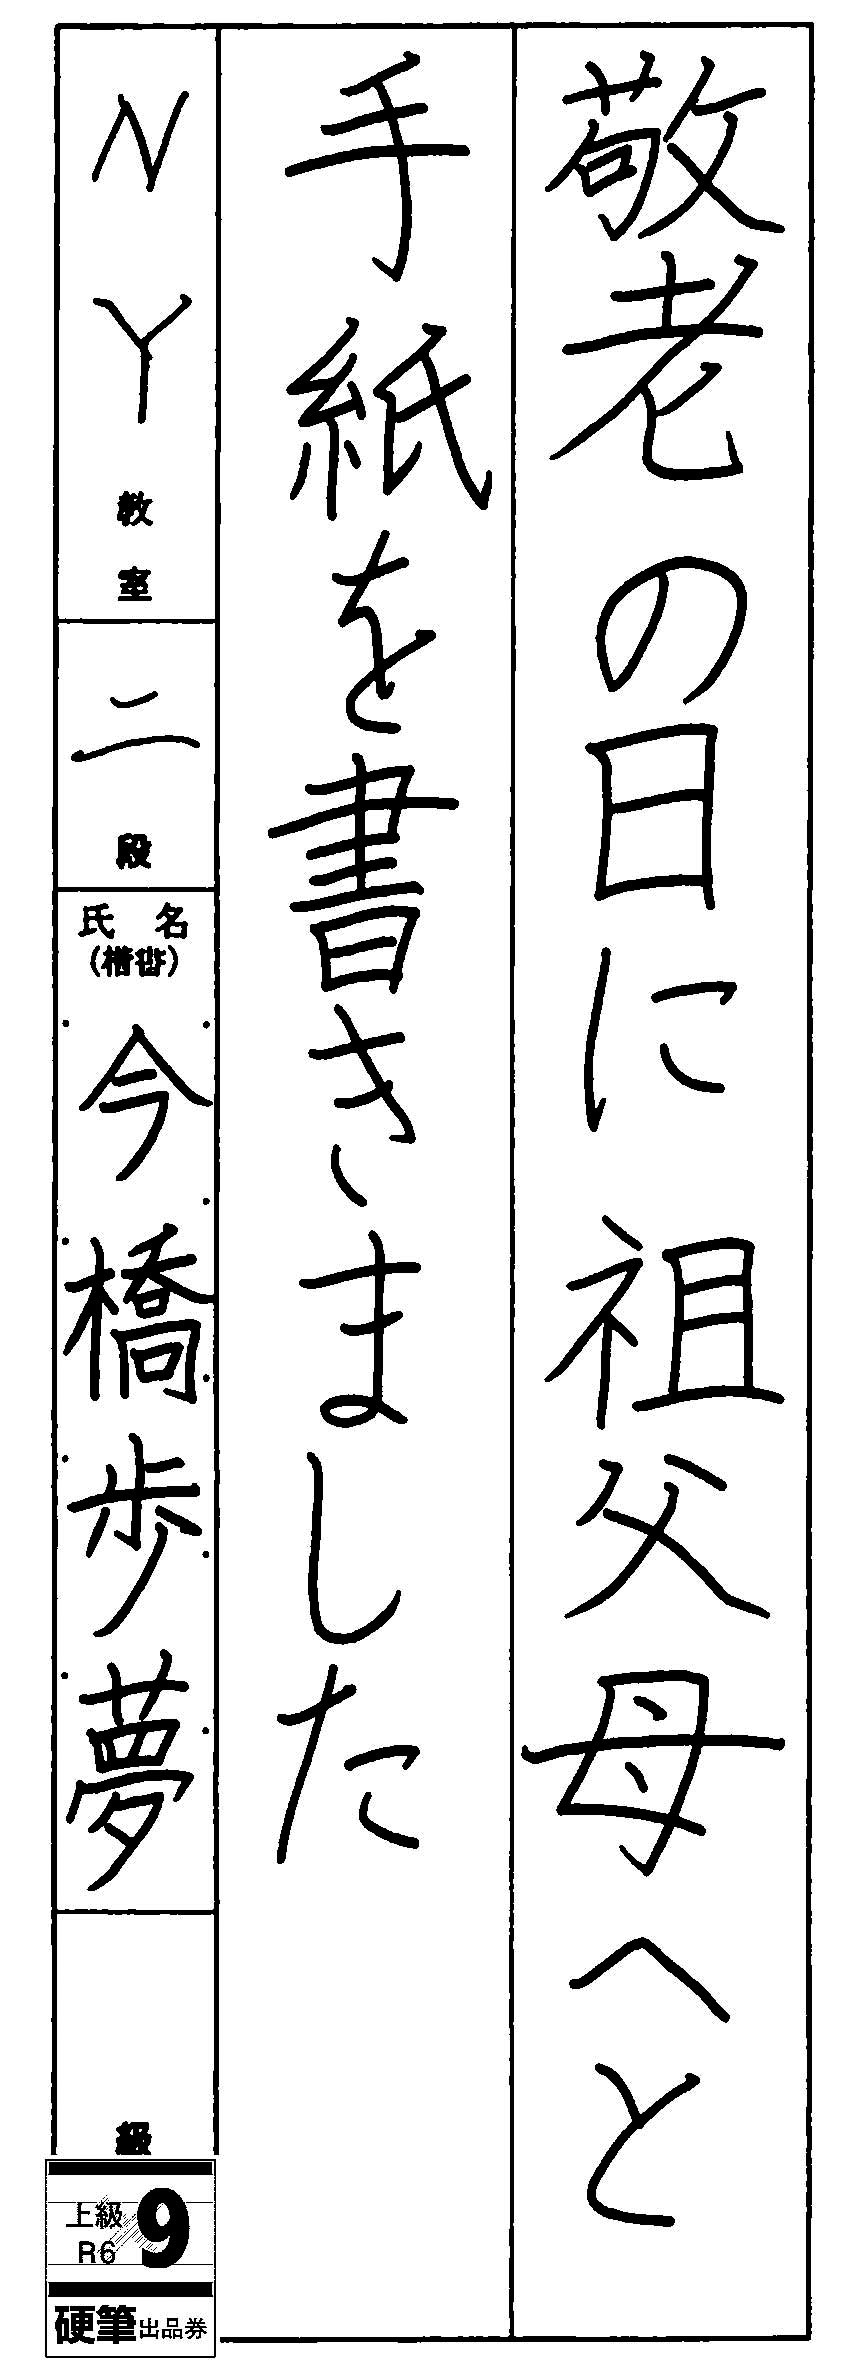 敬老の日に祖父母へと
手紙を書きました
NY教室
二段
氏名
(楷書)
今橋歩夢
級
上級 9
R6
硬筆出品券